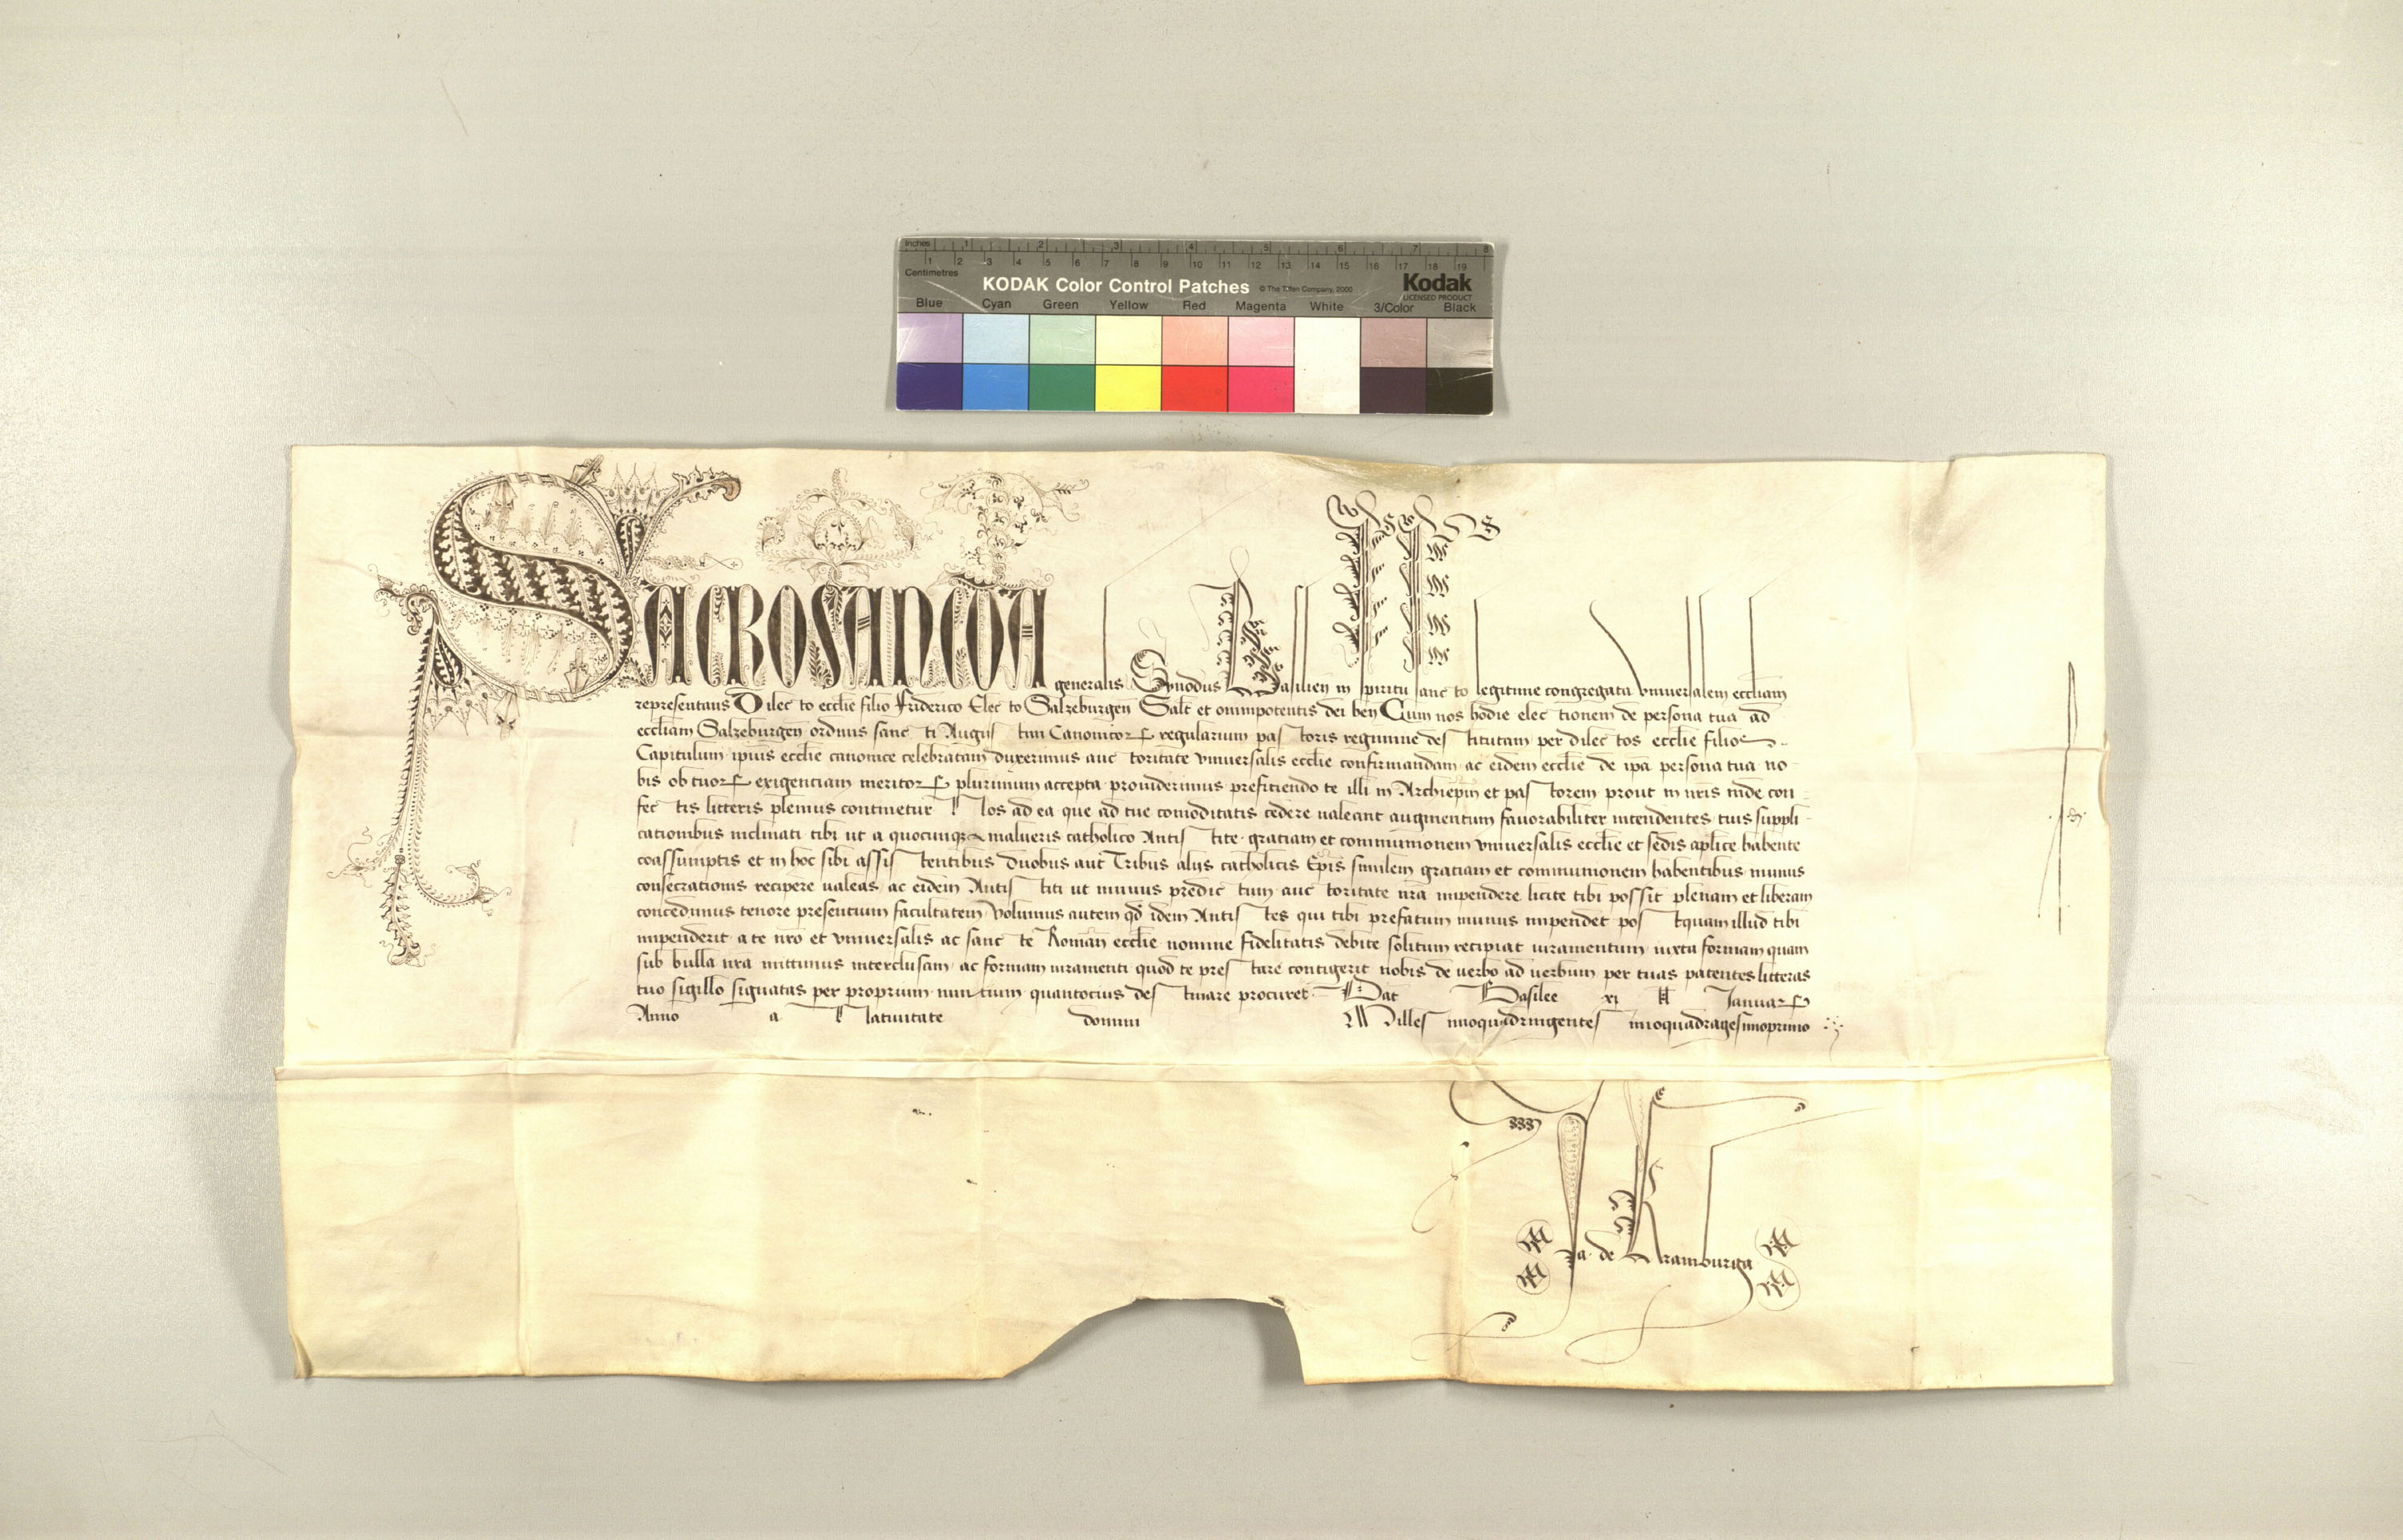 Inches 1 2 3 4 5 6 7 8
Centimetres 1 2 3 4 5 6 7 8 9 10 11 12 13 14 15 16 17 18 19
KODAK Color Control Patches © The Tiffen Company, 2000 Kodak
LICENSED PRODUCT
Blue Cyan Green Yellow Red Magenta White 3/Color Black
SACROSANCTA generalis Synodus Basilien in spiritu sancto legitime congregata vniuersalem eccliam
representans Dilecto ecclie filio Friderico Electo Salzeburgen Salt et omnipotentis dei ben Cum nos hodie electionem de persona tua ad
eccliam Salzeburgen ordinis sancti Augustini Canonicor regularium pastoris regimine destitutam per dilectos ecclie filios
Capitulum ipius ecclie canonice celebratam duxerimus auctoritate vniuersalis ecclie confirmandam ac eidem ecclie de ipa persona tua no-
bis ob tuor exigentiam meritor plurimum accepta prouiderimus preficiendo te illi in Archiepm et pastorem prout in nris inde con-
fectis litteris plenius continetur Nos ad ea que ad tue comoditatis cedere ualeant augmentum fauorabiliter intendentes tuis suppli-
cationibus inclinati tibi ut a quocunque malueris catholico Antistite gratiam et communionem vniuersalis ecclie et sedis aplice habente
coassumptis et in hoc sibi assistentibus duobus aut Tribus alijs catholicis Epis similem gratiam et communionem habentibus munus
consecrationis recipere ualeas ac eidem Antistiti ut munus predictum auctoritate nra impendere licite tibi possit plenam et liberam
concedimus tenore presentium facultatem Volumus autem qd idem Antistes qui tibi prefatum munus impendet postquam illud tibi
impenderit a te nro et vniuersalis ac sancte Roman ecclie nomine fidelitatis debite solitum recipiat iuramentum iuxta formam quam
sub bulla nra mittimus interclusam ac formam iuramenti quod te prestare contigerit nobis de uerbo ad uerbum per tuas patentes litteras
tuo sigillo signatas per proprium nuntium quantocius destinare procuret Dat Basilee xj kl Januar
Anno a Natiuitate domini Millesimoquadringentesimoquadragesimoprimo
Ja. de Aramburga